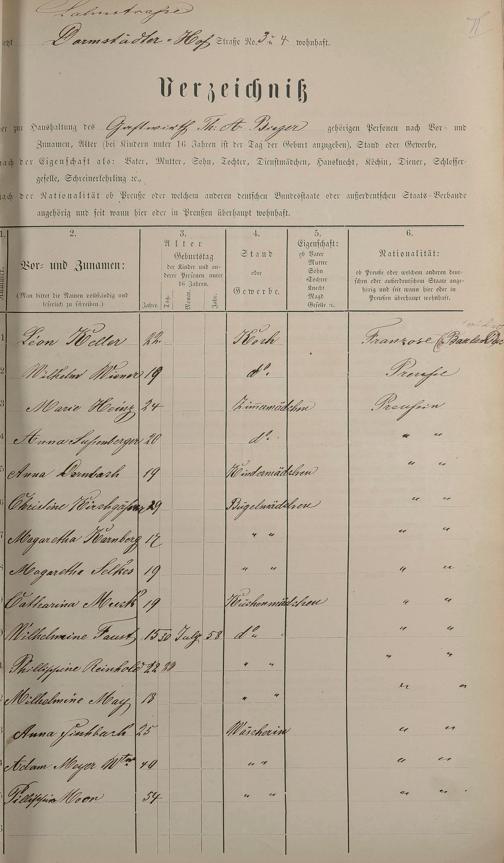 Lahnstraße
Darmstädter-Hof Straße No. 3 u 4 wohnhaft.
Verzeichniß
er zur Haushaltung des Gastwirth Th. A. Burger gehörigen Personen nach Vor- und
Zunamen, Alter (bei Kindern unter 16 Jahren ist der Tag der Geburt anzugeben), Stand oder Gewerbe,
nach der Eigenschaft als: Vater, Mutter, Sohn, Tochter, Dienstmädchen, Hausknecht, Köchin, Diener, Schlosser-
geselle, Schreinerlehrling ꝛc.,
nach der Nationalität ob Preuße oder welchem anderen deutschen Bundesstaate oder außerdeutschen Staats-Verbande
angehörig und seit wann hier oder in Preußen überhaupt wohnhaft.
1. 2. 3. 4. 5. 6.
Nummer. Vor- und Zunamen: (Man bittet die Namen vollständig und leserlich zu schreiben.)
Alter Geburtstag der Kinder und anderer Personen unter 16 Jahren. Jahre. Tag. Monat. Jahr.
Stand oder Gewerbe.
Eigenschaft: ob Vater Mutter Sohn Tochter Knecht Magd Geselle ꝛc.
Nationalität: ob Preuße oder welchem anderen deutschen oder außerdeutschen Staate angehörig und seit wann hier oder in Preußen überhaupt wohnhaft.
1 Léon Keller 22 Koch Franzose
2 Wilhelm Wiener 19 do. Preusse
3 Marie Heinz 24 Zimmermädchen Preusin
4 Anna 20 do. " "
5 Anna Dernbach 19 Kindermädchen " "
6 Christine 29 Bügelmädchen " "
7 Magaretha Kernberg 17 " " " "
Magaretha Selkes 19 " " " "
Catharina Musk 19 Küchenmädchen " "
Wilhelmine Faust 15 30 July 58 do. " "
Phillippine Reinhold 22 " " " "
Wilhelmine May 18 " " " "
Anna 25 Wäscherin " "
Adam Meyer Wtwe 49 " " " "
Moon 54 " " " "